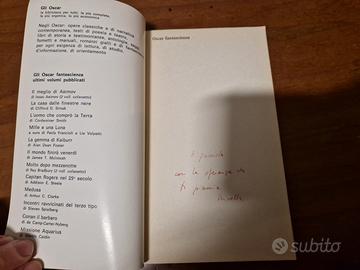 Gli Oscar
la biblioteca per tutti, la più completa,
la più organica, la più economica
Negli Oscar: opere classiche e di narrativa
contemporanea, testi di poesia e teatro,
libri di storia e testimonianze, antologie, saggi,
fumetti e manuali, romanzi gialli e di fantascienza
per ogni esigenza di lettura, di studio,
d'informazione, di orientamento
Gli Oscar fantascienza
ultimi volumi pubblicati
Il meglio di Asimov
di Isaac Asimov (2 voll. cofanetto)
La casa dalle finestre nere
di Clifford D. Simak
L'uomo che comprò la Terra
di Cordwainer Smith
Mille e una Luna
a cura di Paola Francioli e Lia Volpatti
La gemma di Kaiburr
di Alan Dean Foster
Il mondo finirà venerdì
di James T. McIntosh
Molto dopo mezzanotte
di Ray Bradbury (2 voll. cofanetto)
Capitan Rogers nel 25° secolo
di Addison E. Steele
Medusa
di Arthur C. Clarke
Incontri ravvicinati del terzo tipo
di Steven Spielberg
Conan il barbaro
di de Camp-Carter-Nyberg
Missione Aquarius
di Martin Caidin
Oscar fantascienza
con la speranza che
ti piaccia
subito